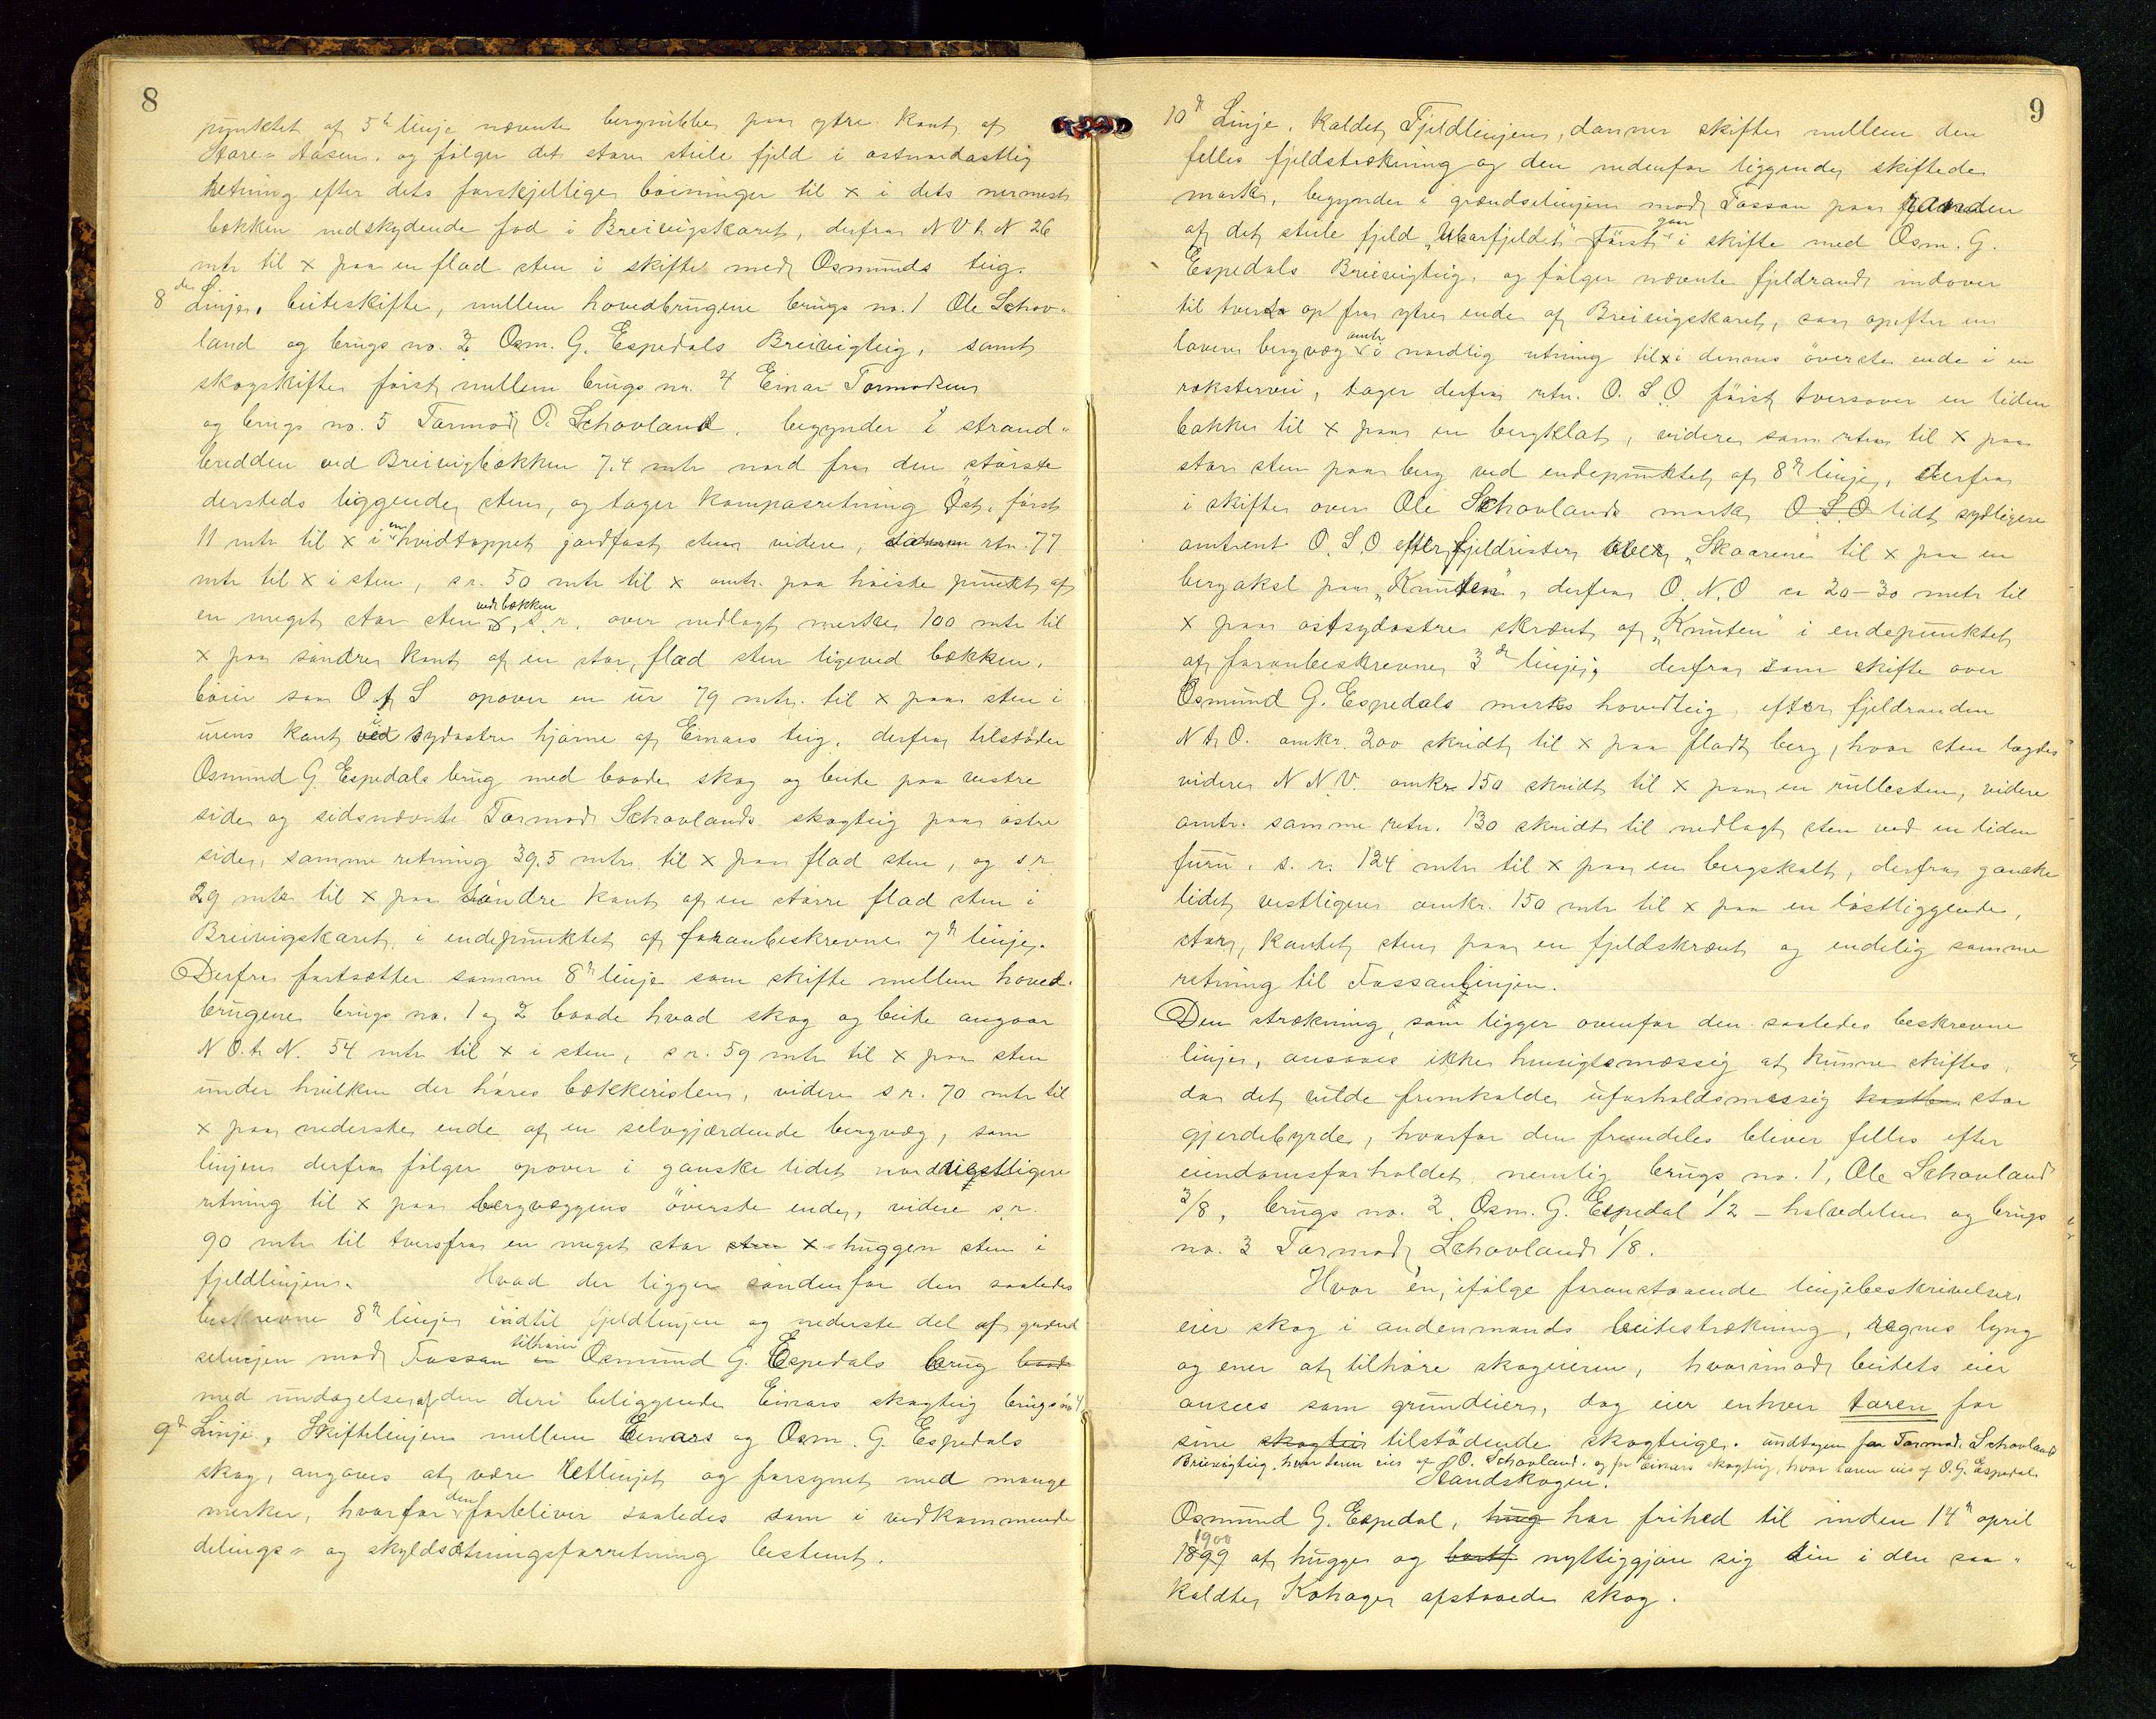 8
punktet af 5te linje nævnte bergnibbe paa ytre kant af
Store-Aasen, og følger det store steile fjeld i ostnordostlig
retning efter dets forskjellige bøininger til x i dets nærmest
bækken nedskydende fod i Breivigskaret, derfra N V t. N 26
mtr til x paa en flad sten i skifte med Osmunds teig.
8de Linje, beiteskifte, mellem hovedbrugene brugs no. 1 Ole Schov-
land og brugs no. 2 Osm. G. Espedals Breivigteig, samt
skogskifte først mellem brugs nr. 4 Einar Tormodsens
og brugs no. 5 Tormod O. Schovland, begynder i strand-
bredden ved Breivigbækken 7.4 mtr nord fra den største
dersteds liggende sten, og tager kompasretning Öst, først
11 mtr til x i en hvidtoppet jordfast sten videre, samme rtn. 77
mtr til x i sten, s r. 50 mtr til x omtr. paa høiste punkt af
en meget stor sten ved bækken, s. r. over nedlagt merke 100 mtr til
x paa søndre kant af en stor, flad sten ligeved bækken,
böier saa O t S opover en ur 79 mtr. til x paa sten i
urens kant ved sydostre hjørne af Einars teig, derfra tilstöder
Osmund G. Espedals brug med baade skog og beite paa vestre
side og sidsnævnte Tormod Schovlands skogteig paa östre
side, samme retning 39.5 mtr til x paa flad sten, og s r.
29 mtr til x paa söndre kant af en større flad sten i
Breivigskaret, i endepunktet af foranbeskrevne 7de linje.
Derfra fortsætter samme 8de linje som skifte mellem hoved-
brugene brugs no. 1 og 2 baade hvad skog og beite angaar
N O. t. N. 54 mtr til x i sten, s r. 59 mtr til x paa sten
under hvilken der høres bækkeristen, videre s r. 70 mtr til
x paa nederste ende af en selvgjærdende bergvæg, som
linjen derfra følger opover i ganske lidet nordvestligere
retning til x paa bergvæggens överste ende, videre s. r.
90 mtr til tversfra en meget stor sten x-huggen sten i
fjeldlinjen. Hvad der ligger søndenfor den saaledes
beskrevne 8de linje indtil fjeldlinjen og nederste del af grænd
selinjen mod Fossan tilhører Osmund G. Espedals brug baade
med undtagelse af den deri beliggende Einars skogteig brugsno 4
9de Linje, Skiftelinjen mellem Einars og Osm. G. Espedals
skog, angaves at være retlinjet og forsynet med mange
merker, hvorfor den forbliver saaledes som i vedkommende
delings- og skyldsætningsforretning bestemt.
9
10de Linje, kaldet Fjeldlinjen, danner skifte mellem den
felles fjeldstrækning og den nedenfor liggende skiftede
mark, begynder i grændselinjen mod Fossan paa randen
af det steile fjeld "Ubarfjeldet" först gaar i skifte med Osm. G.
Espedals Breivigteig, og følger nævnte fjeldrand indover
til tvers op fra ytre ende af Breivigskaret, saa opefter en
lavere bergvæg omtr i nordlig retning til x i dennes överste ende i en
rakstervei, tager derfra retn. O. S. O först tversover en liden
bakke til x paa en bergklat, videre sam retn til x paa
stor sten paa berg ved endepunktet af 8de linje, derfra
i skifte over Ole Schovlands mark, O S O lidt sydligere
omtrent O. S. O efter fjeldristen over "Skaarene" til x paa en
bergaksl paa "Knuten", derfra O. N. O ca 20-30 metr til
x paa ostsydostre skrænt af "Knuten" i endepunktet
af foranbeskrevne 3de linje, derfra som skifte over
Osmund G. Espedals marks hovedteig, efter fjeldranden
N t. O. omkr. 200 skridt til x paa fladt berg, hvor sten lagdes
videre N N. V. omkr 150 skridt til x paa en rullesten, videre
omtr. samme retn. 130 skridt til nedlagt sten ved en liden
furu. s. r. 124 mtr til x paa en bergskalt, derfra ganske
lidet vestligere omkr. 150 mtr til x paa en løstliggende,
stor, kantet sten paa en fjeldskrænt og endelig samme
retning til Fossanlinjen.
Den strækning, som ligger ovenfor den saaledes beskrevne
linje, ansaaes ikke hensigtsmæssig at kunne skiftes,
da det vilde fremkalde uforholdsmessig kostba stor
gjerdebyrde, hvorfor den fremdeles bliver felles efter
eiendomsforholdet, nemlig brugs no. 1, Ole Schovland
3/8, brugs no. 2 Osm. G. Espedal 1/2 - halvdelen og brugs
no. 3 Tormod Schovland 1/8.
Hvor en, ifølge foranstaaende linjebeskrivelser
eier skog i andenmands beitestrækning, regnes lyng
og ener at tilhøre skogeieren, hvorimod beitets eier
ansees som grundeier, dog eier enhver toren for
sine skogtei tilstödende skogteige. undtagen for Tormod Schovlands
Breivigteig, hvor toren eies af O. Schovland. og for Einars skogteig, hvor toren eies af O. G. Espedal.
Standskogen.
Osmund G. Espedal, hug har frihed til inden 14de april
1900
1899 at hugge og bortf nyttiggjøre sig sin i den saa-
kaldte Kohagen afstaaede skog.